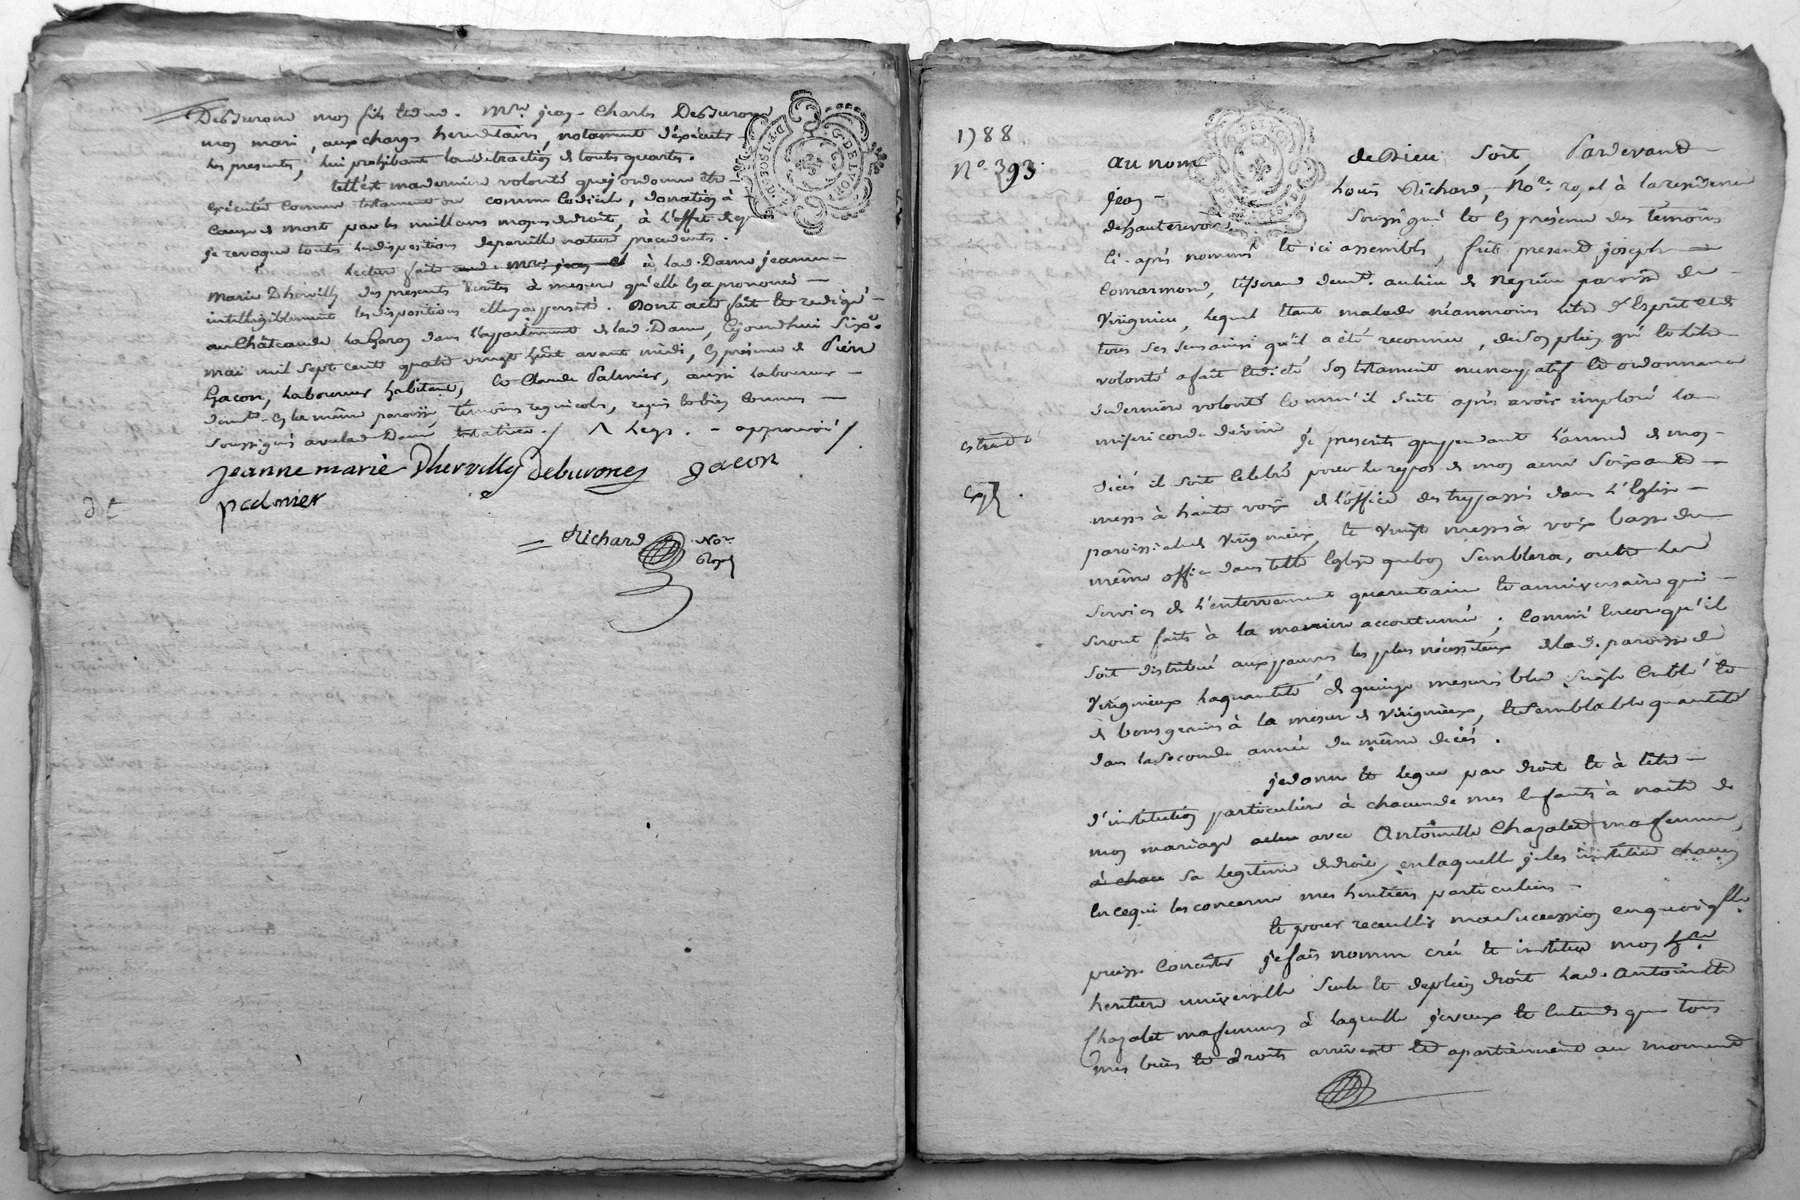 DeBurone mon fils led. me. Mre. jean Charles DeBurone
mon mari, aux charges hereditaires, notament d'exécuter
les presentes, lui prohibant toute detraction de toutes quartes.
telle est ma derniere volonté que j'ordonne être
exécutée comme testament ou comme codicile, donation à
cause de mort par les meilleurs moyens de droit, à l'effet de quoy
je revoque toutes les dispositions de pareille nature precedentes.
lecture faite and. Mre. jean et à lad. Dame jeanne
Marie Dhervilly des presentes ecrites à mesure qu'elle les a prononcé
intelligiblement les dispositions elle y a persisté. Dont acte fait et redigé
au Château de la Garon dans l'appartement de lad. Dame, cejourd'hui six
mai mil sept cent quatre vingt huit avant midi, en présence de Piere
Gacon, laboureur habitant, et Claude Palmier, aussi laboureur
demt. en la même paroisse, témoins regnicoles, requis et bien connus
soussignés avec lad. Dame testatrice ./ ^ legs. - approuvé /
jeanne marie Dhervilly deburone gacon
palmier
Richard Nore.
Royal
1788
No. 393.
au nom de Dieu soit, Pardevant
Louis Richard, Nore. royal à la residence
jean
de hauterivoire soussigné et en présence des témoins
ci-après nommés et ici assemblés, fut present joseph
Comarmond, tisserand demt. au lieu de Negrieu paroisse de
Virignieu, lequel étant malade néanmoins libre d'esprit et de
tous ses sens ainsi qu'il a été reconnu, de son plein gré et libre
volonté a fait et dicté son testament nuncupatif et ordonnance
de derniere volonté comm'il suit après avoir imploré la
misericorde divine
je prescrits que pendant l'année de mon
décès il soit célébré pour le repos de mon ame soixante
messes à haute voix de l'office des trepassés dans l'Eglise
paroissiale de Virignieux, et vingt messes à voix basse du
même office dans telle Eglise que bon semblera, outre les
services de l'enterrement quarantaine et anniversaire qui
seront faits à la maniere accoutumée; comm'encore qu'il
soit distribué aux pauvres les plus nécessiteux de lad. paroisse de
Virignieux la quantité de quinze mesures bled seigle criblé et
de bons grains à la mesure de Virignieux, et semblable quantité
dans la seconde année du même décès.
je donne et legue par droit et à titre
d'institution particuliere à chacun de mes enfants à naitre de
mon mariage avec Antoinette Chazalet ma femme,
à chac sa legitime de droit, en laquelle je les institue chacun
en ce qui les concerne mes heritiers particuliers
et pour receuillir ma succession en quoi qu'elle
puisse consister je fais nomme crée et institue mon hre.
heritiere universelle seule et de plein droit lad. Antoinette
Chazalet ma femme à laquelle je veux et entends que tous
mes biens et droits arrivent et apartiennent au moment